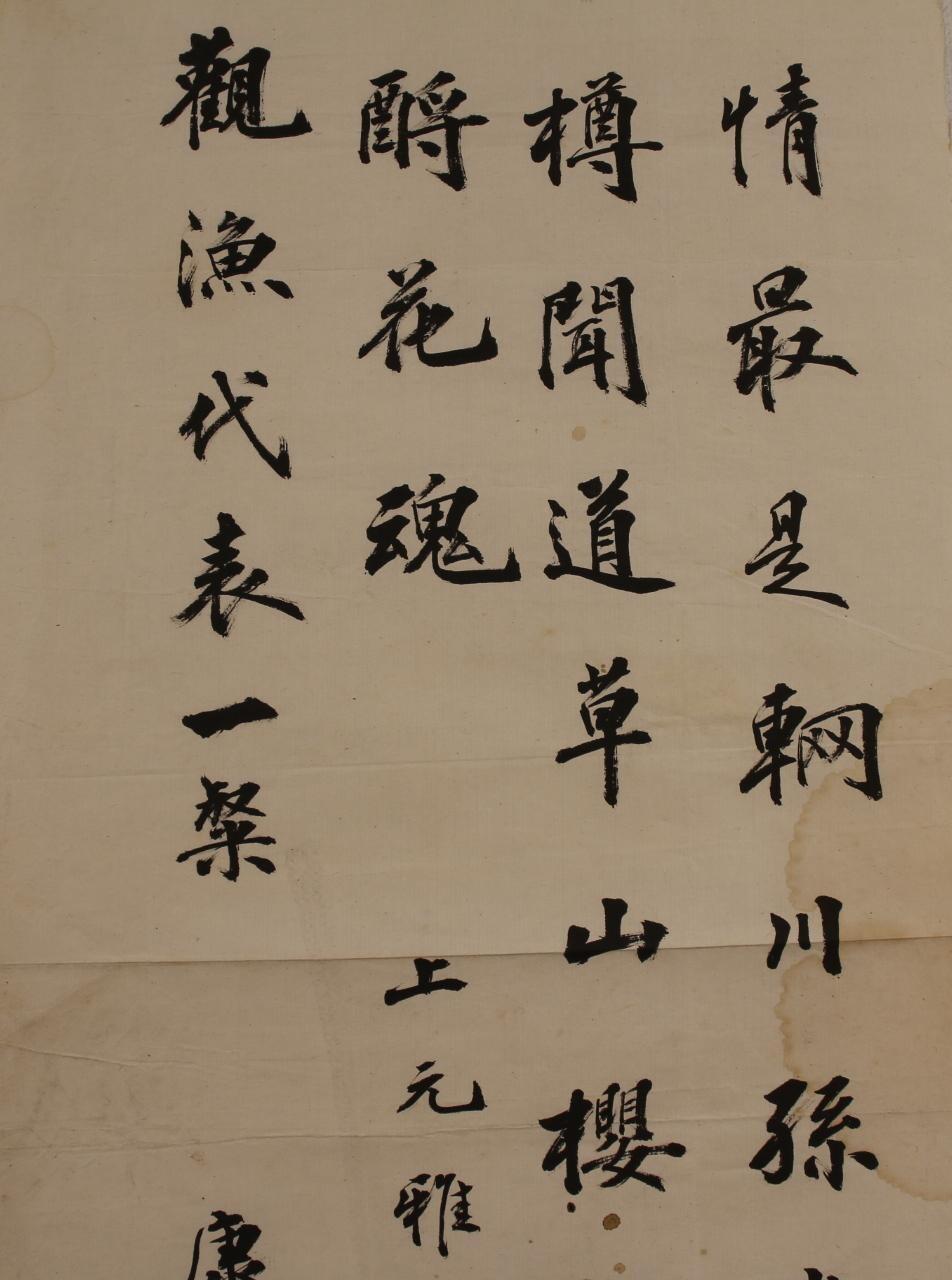 情最是輞川孫
樽聞道草山櫻
酹花魂 上元雅
觀漁代表一粲 康